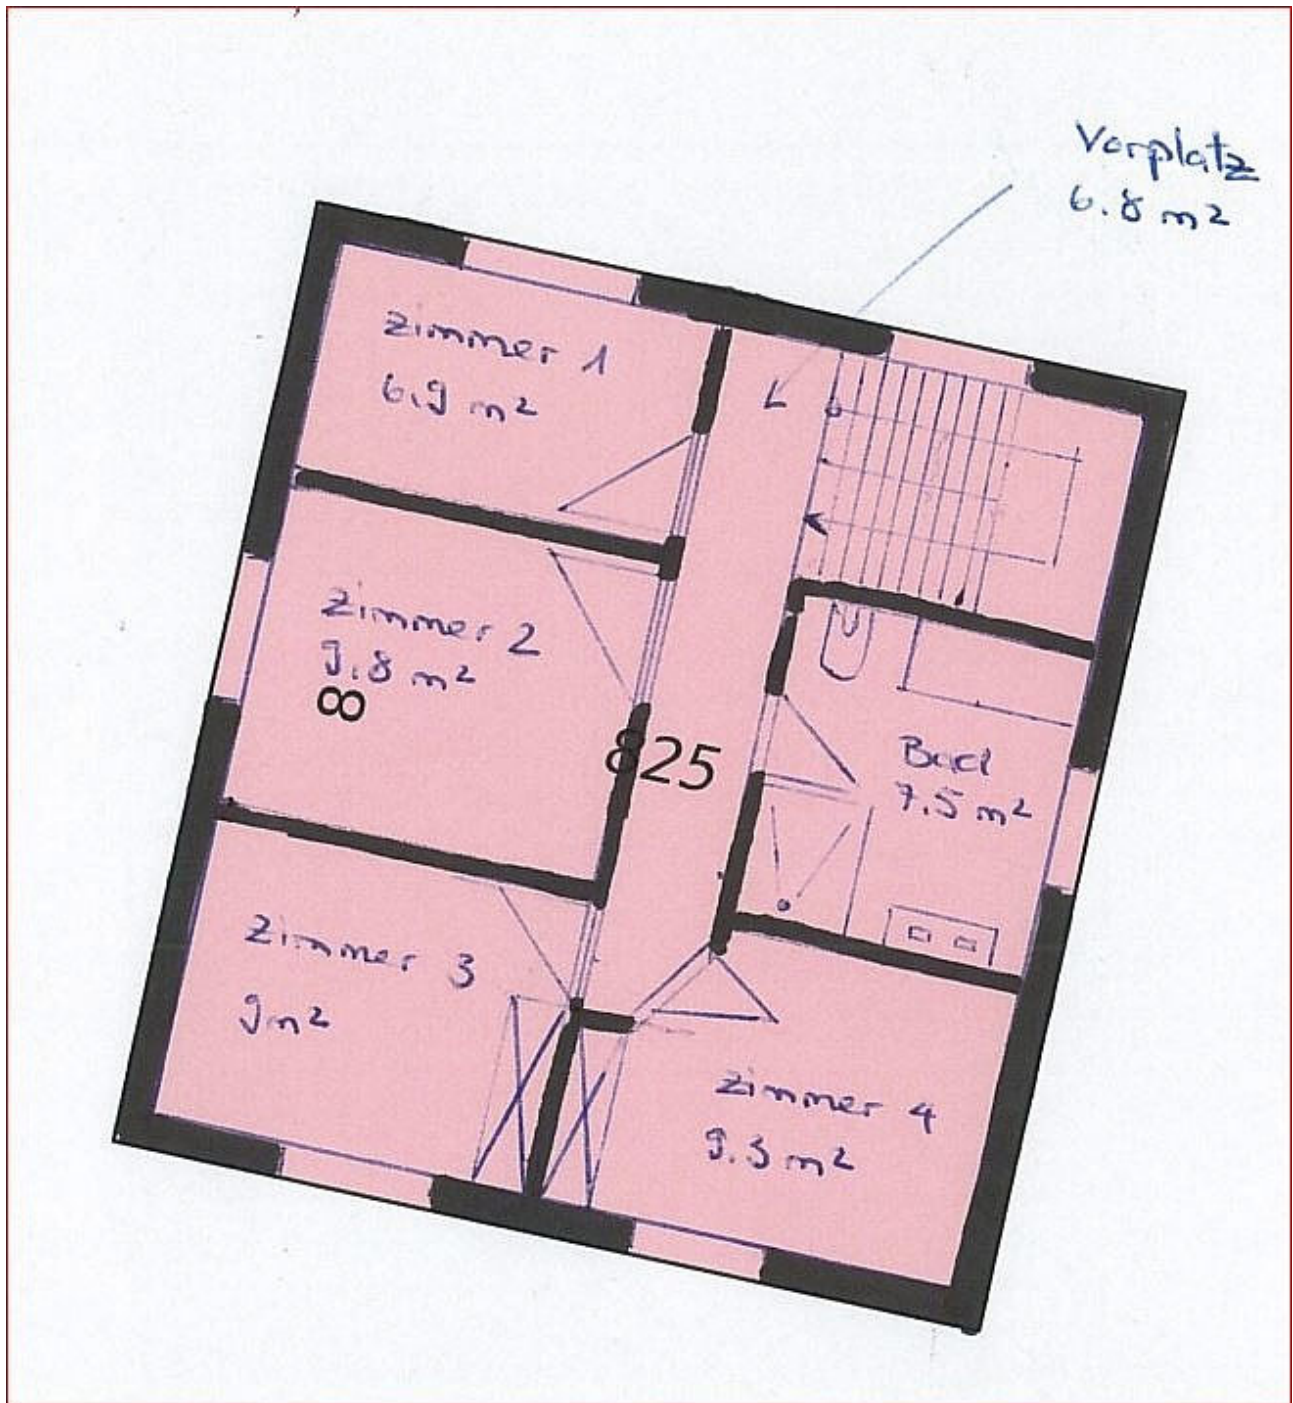 Vorplatz
6.8 m²
Zimmer 1
6.9 m²
Zimmer 2
9.8 m²
8
825
Bad
7.5 m²
Zimmer 3
9 m²
Zimmer 4
9.3 m²